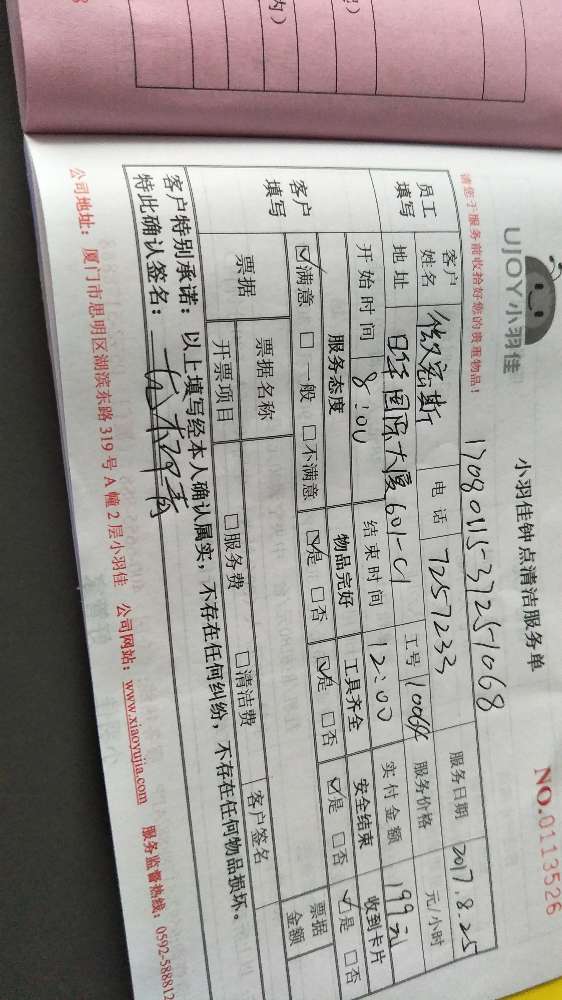 UJOY小羽佳
小羽佳钟点清洁服务单
NO.01113526
请您于服务前收拾好您的贵重物品!
17080115-37251068
员工填写
客户姓名
电话 7257233
服务日期 2017.8.25
地址 国际大厦601-C1
工号 10064
服务价格 元/小时
开始时间 8:00
结束时间 12:00
实付金额 199元
客户填写
服务态度
物品完好
工具齐全
安全结束
收到卡片
☑满意 □一般 □不满意
☑是 □否
☑是 □否
☑是 □否
☑是 □否
票据
票据名称
票据金额
开票项目
□服务费
□清洁费
客户签名
客户特别承诺: 以上填写经本人确认属实,不存在任何纠纷,不存在任何物品损坏。
特此确认签名:
公司地址: 厦门市思明区湖滨东路 319 号 A 幢 2 层小羽佳 公司网站: www.xiaoyujia.com 服务监督热线: 0592-588812